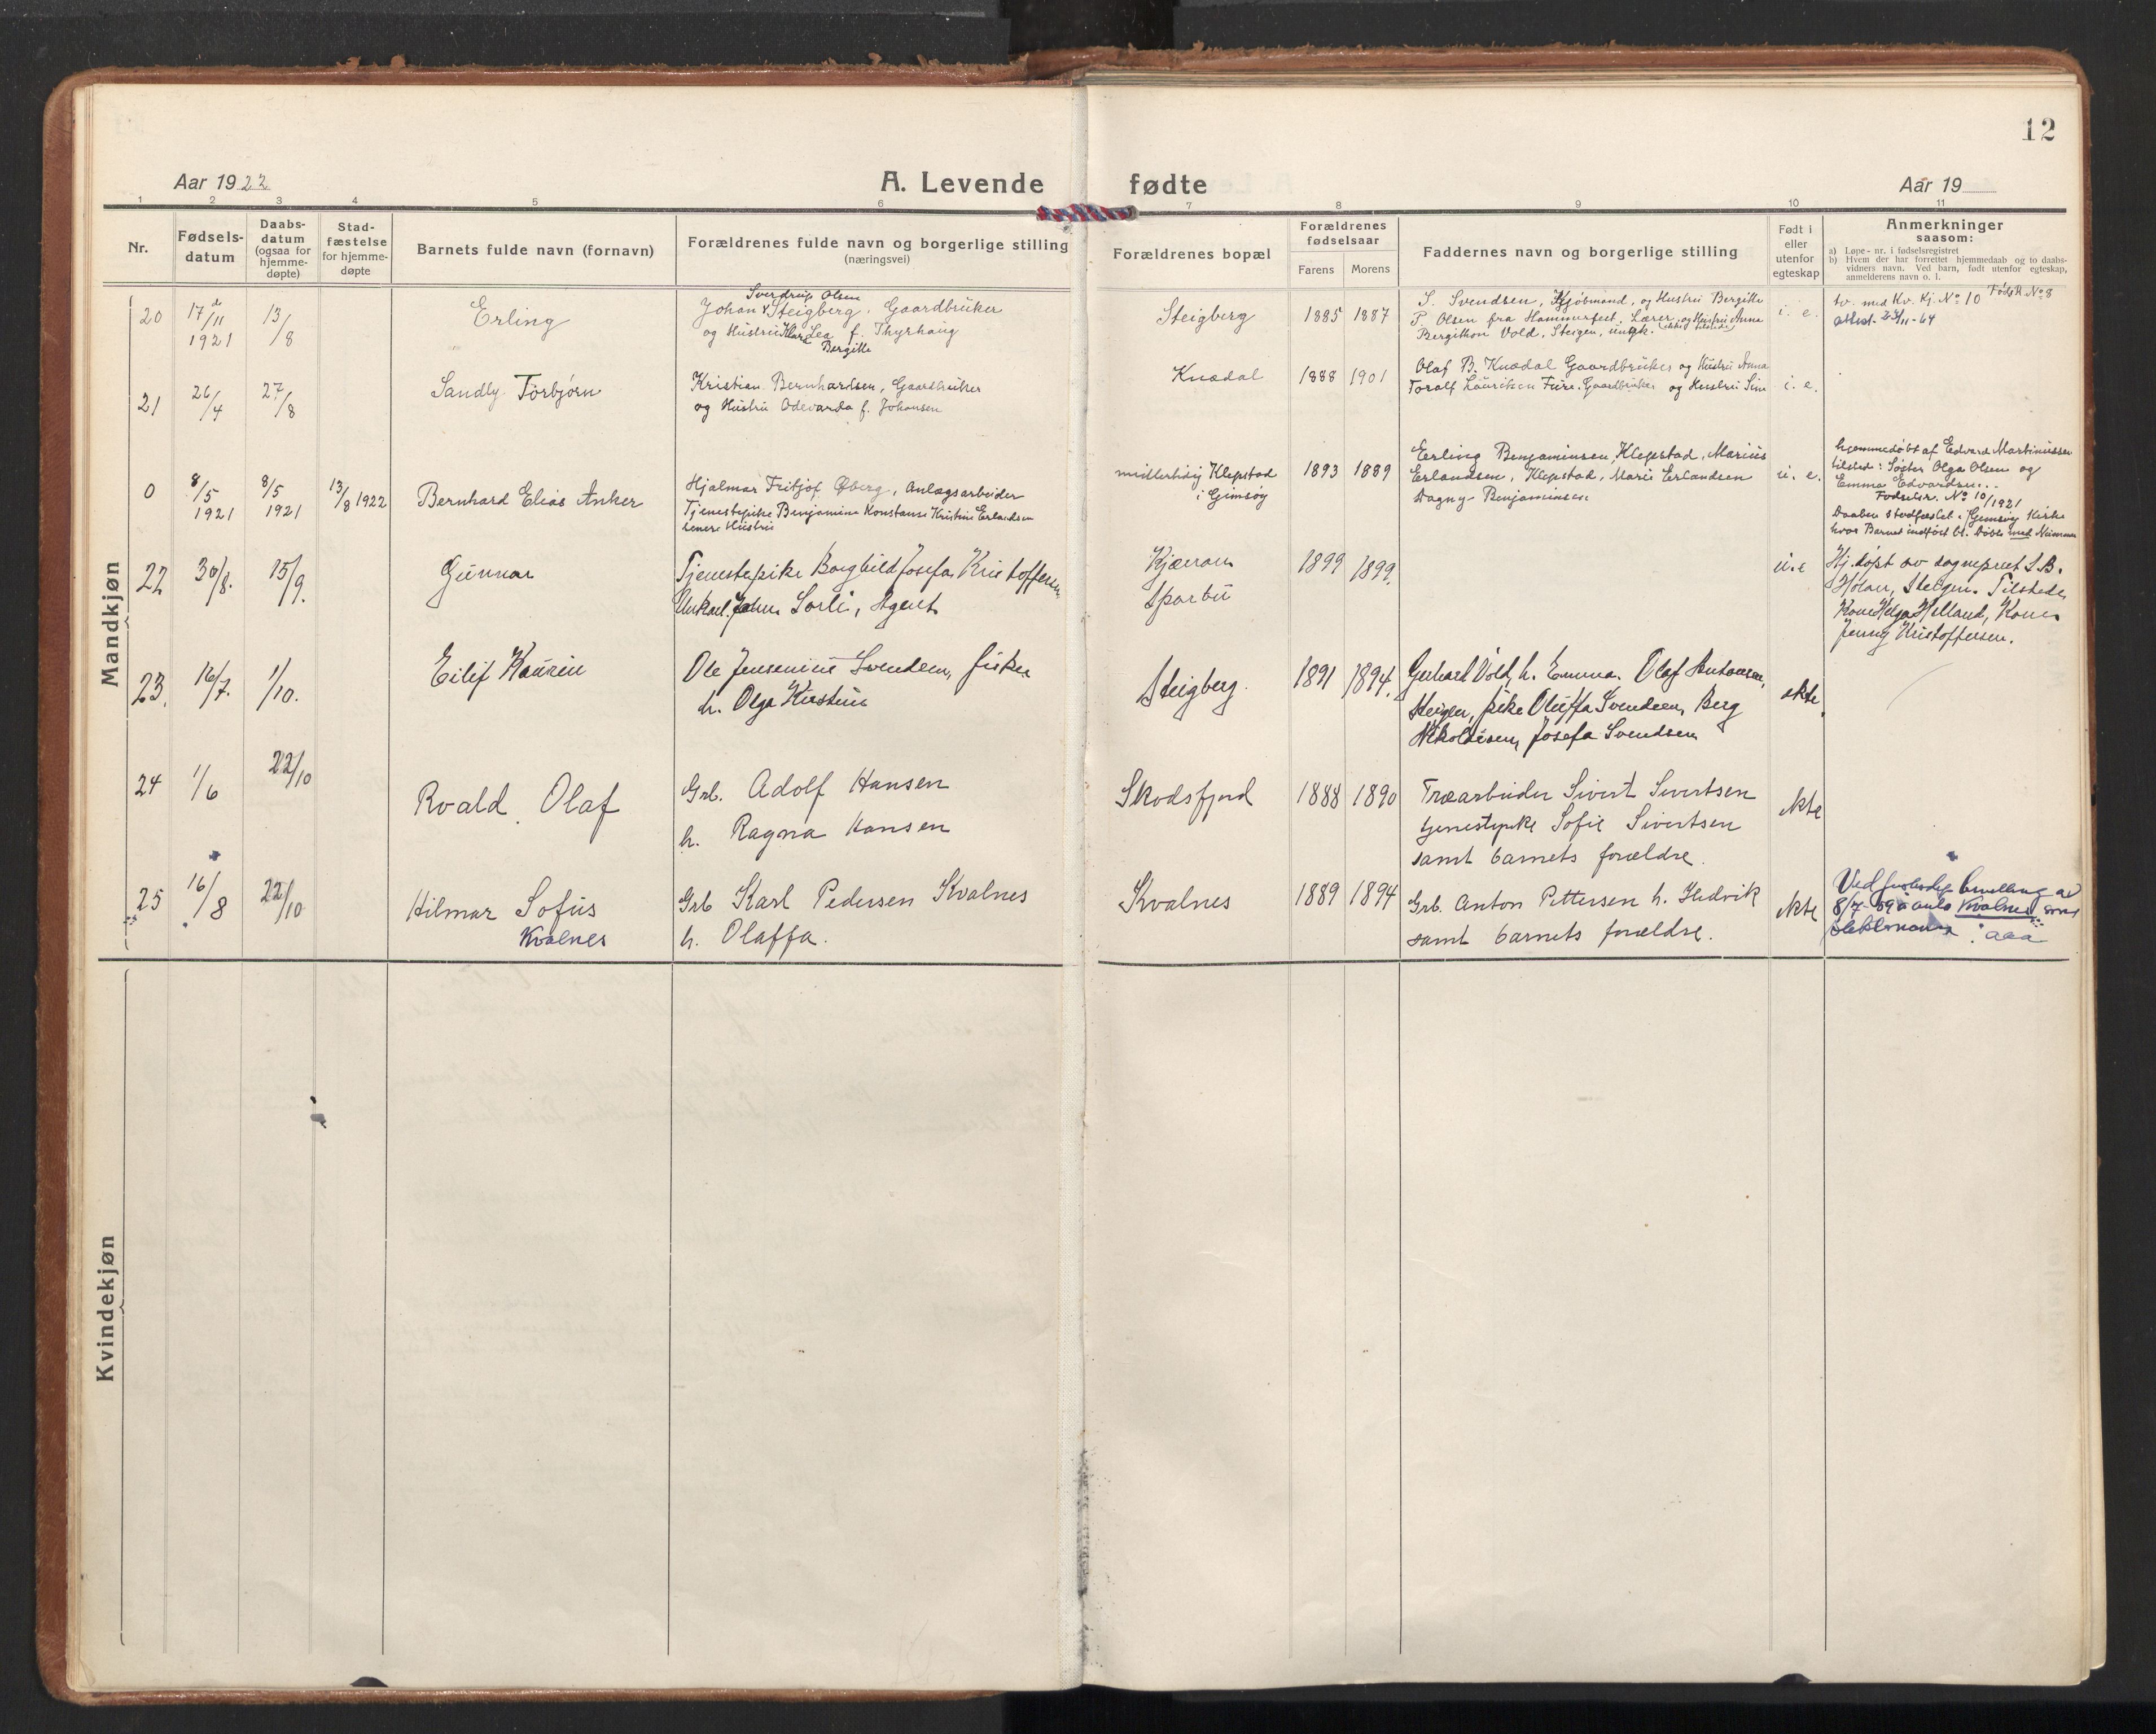 12
Aar 1922 A. Levende fødte Aar 19
1 2 3 4 5 6 7 8 9 10 11
Nr.
Fødsels-
datum
Daabs-
datum
(ogsaa for
hjemme-
døpte)
Stad-
fæstelse
for hjemme-
døpte
Barnets fulde navn (fornavn)
Forældrenes fulde navn og borgerlige stilling
(næringsvei)
Forældrenes bopæl
Forældrenes
fødselsaar
Farens Morens
Faddernes navn og borgerlige stilling
Født i
eller
utenfor
egteskap
Anmerkninger
saasom:
a) Løpe-nr. i fødselsregistret
b) Hvem der har forrettet hjemmedaab og to daabs-
vidners navn. Ved barn, født utenfor egteskap,
anmelderens navn o. l.
Mandkjøn
20
17/11
1921
13/8
Erling
Sverdrup Olsen
Johan Steigberg, Gaardbruker
og Hustru Lea f. Thyrhaug
Bergitte
Steigberg
1885 1887
S. Svendsen, Kjøbmand, og Hustru Bergitte
P. Olsen fra Hammerfest, Lærer og Hustru Anna
Bergithon Vold, Steigen, ungk.
i. e.
tv. med Kv. Kj. No 10 Føds R. No 8
attest 23/11-64
21
26/4
27/8
Sandly Torbjørn
Kristian Bernhardsen, Gaardbruker
og Hustru Odevarda f. Johansen
Knædal
1888 1901
Olaf B. Knædal Gaardbruker og Hustru Anna
Toralf Lauritsen Fure, Gaardbruker og Hustru Sine
i. e.
0
8/5
1921
8/5
1921
13/8 1922
Bernhard Elias Anker
Hjalmar Fritjof Øberg, Anlagsarbeider
Tjenestepike Benjamine Konstanse Kristine Erlandsen
senere Hustru
midlertidig Klepstad
i Gimsøy
1893 1889
Erling Benjaminsen Klepstad, Marius
Erlandsen, Klepstad, Marie Erlandsen
Dagny Benjaminsen
u. e.
hjemmedøbt af Edvard Martinussen
tilsted: Søster Olga Olsen og
Emma Edvardsen.
Fødselsr. No 10/1921
Daaben stadfæstet i Gimsøy Kirke
hvor Barnet indført bl. Døbte med Nummer
22
30/8.
15/9.
Gunnar
Tjenestepike Borghild Josefa Kristoffersen,
Unkarl John Sorli, Agent
Kjærran
Sparbu
1899 1899.
u. e
Hj. døpt av sogneprest S.B.
Holan, Steigen. Tilstede,
Kone Helga Helland, Kone
Jenny Kristoffersen.
23.
16/7.
1/10.
Eilif Kaurin
Ole Jensenius Svendsen, fisker
h. Olga Kirstine
Steigberg.
1891 1894.
Gerhard Vold, h. Emma. Olaf Antonsen,
Steigen, pike Oluffa Svendsen, Berg
Nikolaisen, Josefa Svendsen
ekte.
24
1/6
22/10
Roald Olaf
Grb. Adolf Hansen
h. Ragna Hansen
Skodsfjord
1888 1890
Træarbeider Sivert Sivertsen
tjenestepike Sofie Sivertsen
samt barnets forældre.
ekte
25
16/8
22/10
Hilmar Sofus
Kvalnes
Grb Karl Pedersen Kvalnes
h. Olaffa.
Kvalnes
1889 1894
Grb. Anton Pettersen h. Hedvik
samt barnets forældre.
ekte
Ved bevilling av
8/7-59 Kvalnes som
slektsnavn aaa
Kvindekjøn